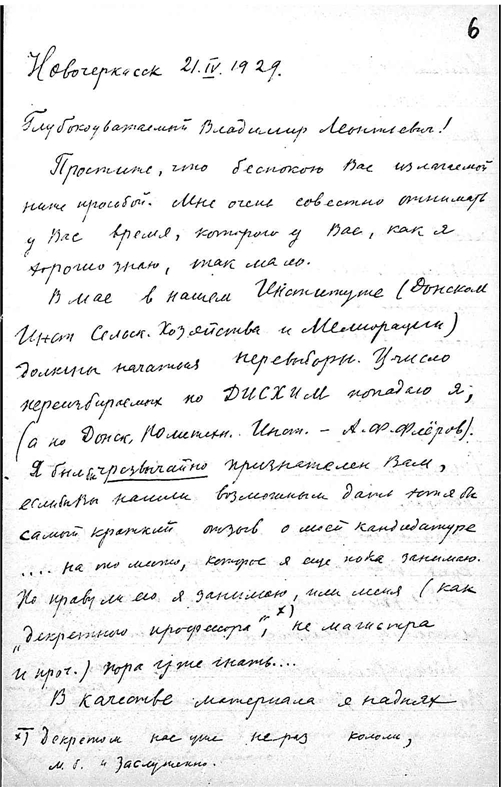 6
Новочеркасск 21.IV.1929.
Глубокоуважаемый Владимир Леонтьевич!
Простите, что беспокою Вас излагаемой
ниже просьбой. Мне очень совестно отнимать
у Вас время, которого у Вас, как я
хорошо знаю, так мало.
В мае в нашем Институте (Донском
Инст Сельск. Хозяйства и Мелиорации)
должны начаться перевыборы. В число
переизбираемых по ДИСХИМ попадаю я,
(а по Донск. Политехн. Инст. – А.Ф. Флёров).
Я был бы чрозвычайно признателен Вам,
если бы Вы нашли возможным дать хотя бы
самый краткий отзыв о моей кандидатуре
.... на то место, которое я еще пока занимаю.
Но праву ли его я занимаю, или меня (как
„декретного профессора", х) не магистра
и проч.) пора уже гнать....
В качестве материала я надпях
х) Декретом нас уже не раз кололи,
м. б. и заслуженно.